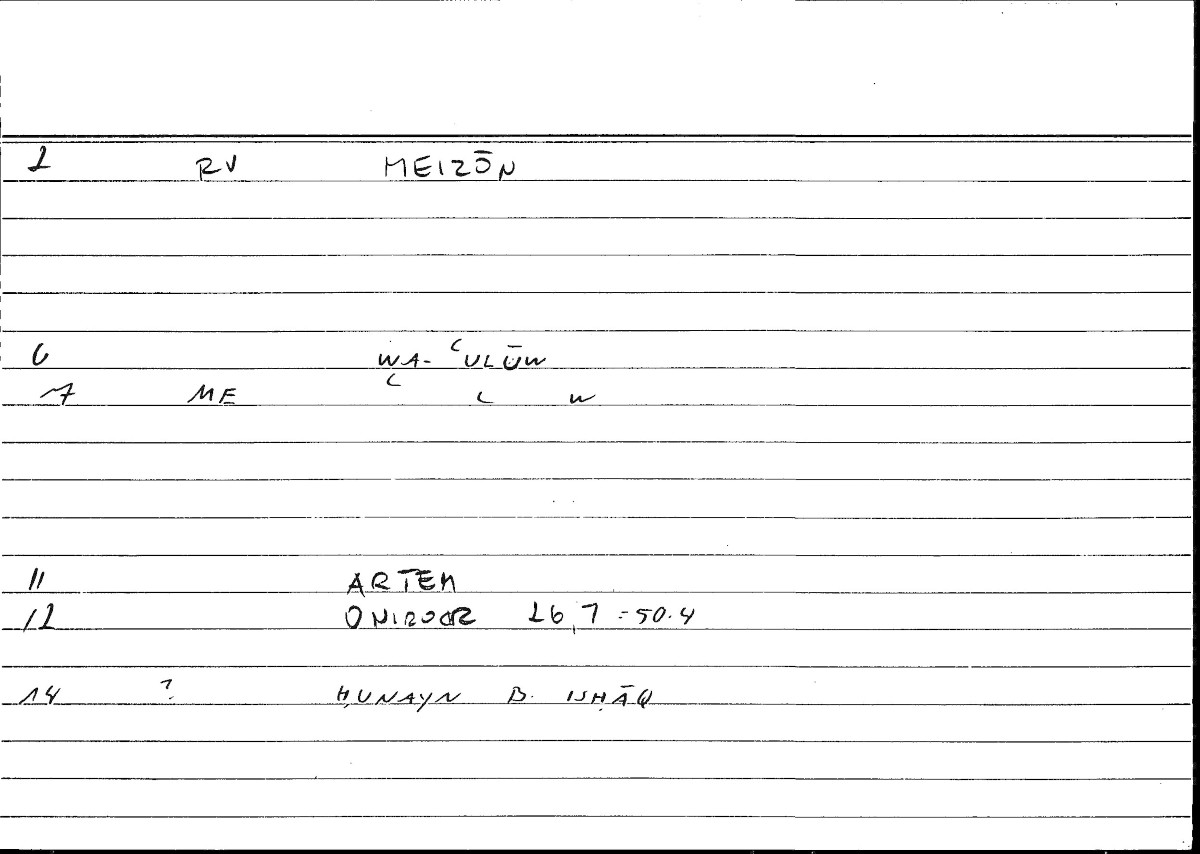 1 RV MEIZŌN
6 WA-ʿULŪW
7 ME ʿ ʿ W
11 ARTEM
12 ONIROCR 26,7 = 50.4
14 ? ḤUNAYN B. ISḤĀQ